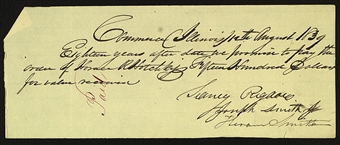 Commerce Illinois 12th August 1839
Eighteen years after date, we promise to pay the
order of Horace R Hotchkiss Fifteen Hundred Dollars
for value received
Paid
Sidney Rigdon
Joseph Smith Jr
Hiram Smith